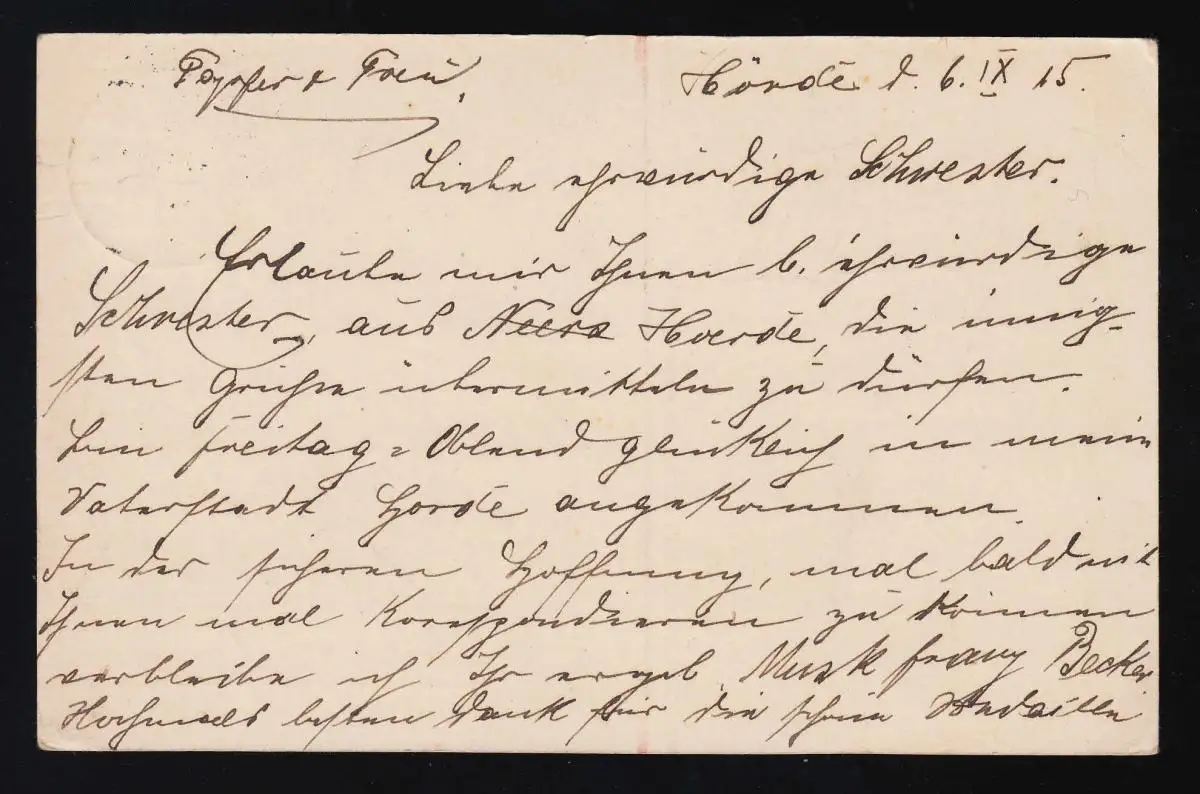 Tapfer & Treu,
Hörde d. 6. IX 15.
Liebe ehrwürdige Schwester.
Erlaube mir Ihnen l. ehrwürdige
Schwester, aus Hoerde, die innig-
sten Grüße übermitteln zu dürfen.
bin Freitag = Abend glücklich in meine
Vaterstadt Hörde angekommen.
In der sicheren Hoffnung, mal bald mit
Ihnen mal Korespondieren zu können
verbleibe ich Ihr ergeb. Musk Franz Becker
Hochmals besten Dank für die schöne Medaille